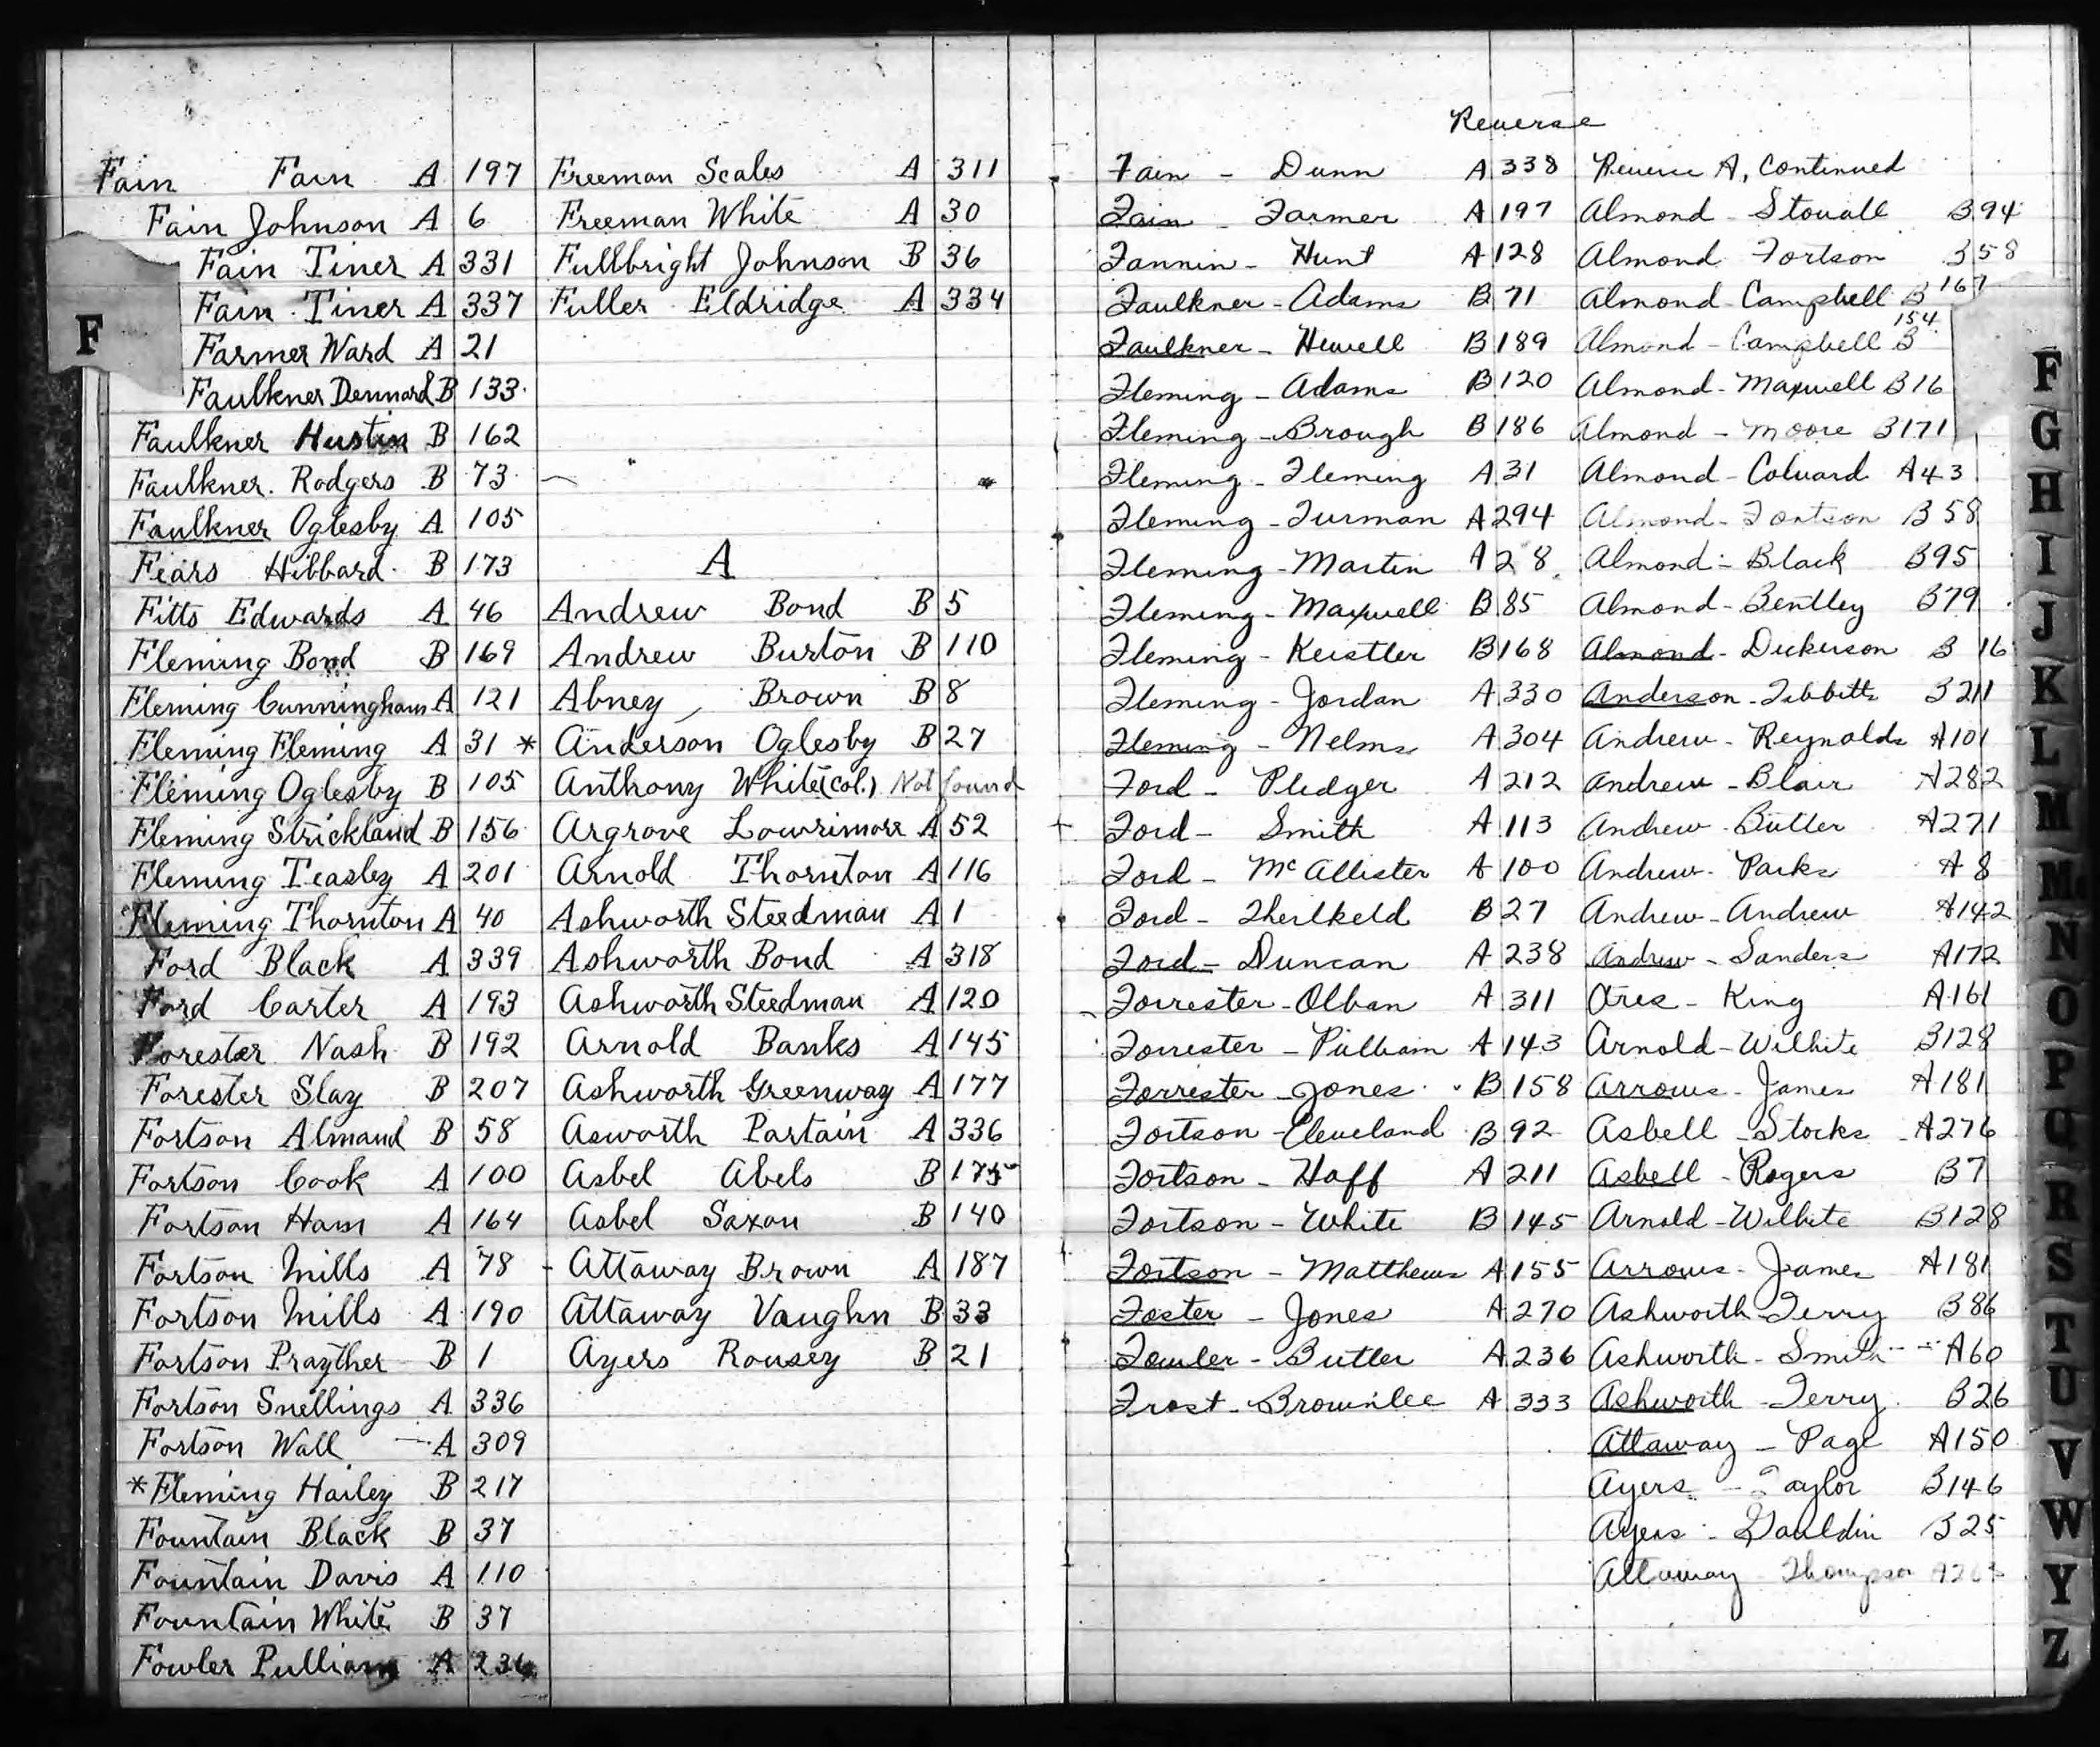 Fain Fain A 197
Fain Johnson A 6
Fain Tiner A 331
Fain Tiner A 337
F
Farmer Ward A 21
Faulkner Dennard B 133
Faulkner Hustin B 162
Faulkner. Rodgers B 73
Faulkner Oglesby A 105
Fears Hibbard B 173
Fitts Edwards A 46
Fleming Bond B 169
Fleming Cunningham A 121
Fleming Fleming A 31 *
Fleming Oglesby B 105
Fleming Strickland B 156
Fleming Teasley A 201
Fleming Thornton A 40
Ford Black A 339
Ford Carter A 193
Forester Nash B 192
Forester Slay B 207
Fortson Almand B 58
Fortson Cook A 100
Fortson Ham A 164
Fortson Mills A 78
Fortson Mills A 190
Fortson Prayther B 1
Fortson Snellings A 336
Fortson Wall A 309
*Fleming Hailey B 217
Fountain Black B 37
Fountain Davis A 110
Fountain White B 37
Fowler Pulliam A 236
Freeman Scales A 311
Freeman White A 30
Fullbright Johnson B 36
Fuller Eldridge A 334
A
Andrew Bond B 5
Andrew Burton B 110
Abney, Brown B 8
Anderson Oglesby B 27
Anthony White (Col.) Not found
Argrove Lowrimore A 52
Arnold Thornton A 116
Ashworth Steedman A 1
Ashworth Bond A 318
Ashworth Steedman A 120
Arnold Banks A 145
Ashworth Greenway A 177
Asworth Partain A 336
Asbel Abels B 175
Asbel Saxon B 140
Attaway Brown A 187
Attaway Vaughn B 33
Ayers Rousey B 21
Reverse
Fain - Dunn A 338
Fain - Farmer A 197
Fannin - Hunt A 128
Faulkner - Adams B 71
Faulkner - Hewell B 189
Fleming - Adams B 120
Fleming - Brough B 186
Fleming - Fleming A 31
Fleming - Turman A 294
Fleming - Martin A 28
Fleming - Maxwell B 85
Fleming - Keistler B 168
Fleming - Jordan A 330
Fleming - Nelms A 304
Ford - Pledger A 212
Ford - Smith A 113
Ford - McAllister A 100
Ford - Therlkeld B 27
Ford - Duncan A 238
Forrester - Olban A 311
Forrester - Pulliam A 143
Forrester - Jones B 158
Fortson - Cleveland B 92
Fortson - Haff A 211
Fortson - White B 145
Fortson - Matthews A 155
Foster - Jones A 270
Fowler - Butler A 236
Frost - Brownlee A 333
Reverse A, Continued
Almond - Stovall B 94
Almond Fortson B 58
Almond - Campbell B 167
Almond - Campbell B 154
Almond - Maxwell B 16
Almond - Moore B 171
Almond - Colvard A 43
Almond - Fortson B 58
Almond - Black B 95
Almond - Bentley B 79
Almond - Dickerson B 16
Anderson - Tibbitts B 211
Andrew - Reynolds A 101
Andrew - Blair A 282
Andrew - Butler A 271
Andrew - Parks A 8
Andrew - Andrew A 142
Andrew - Sanders A 172
Ares - King A 161
Arnold - Wilhite B 128
Arrows - James A 181
Asbell - Stocks A 276
Asbell - Rogers B 7
Arnold - Wilhite B 128
Arrows - James A 181
Ashworth - Terry B 86
Ashworth - Smith A 60
Ashworth - Terry B 26
Attaway - Page A 150
Ayers - Taylor B 146
Ayers - Gauldin B 25
Attaway Thompson
F
G
H
I
J
K
L
M
Mc
N
O
P
Q
R
S
T
U
V
W
Y
Z